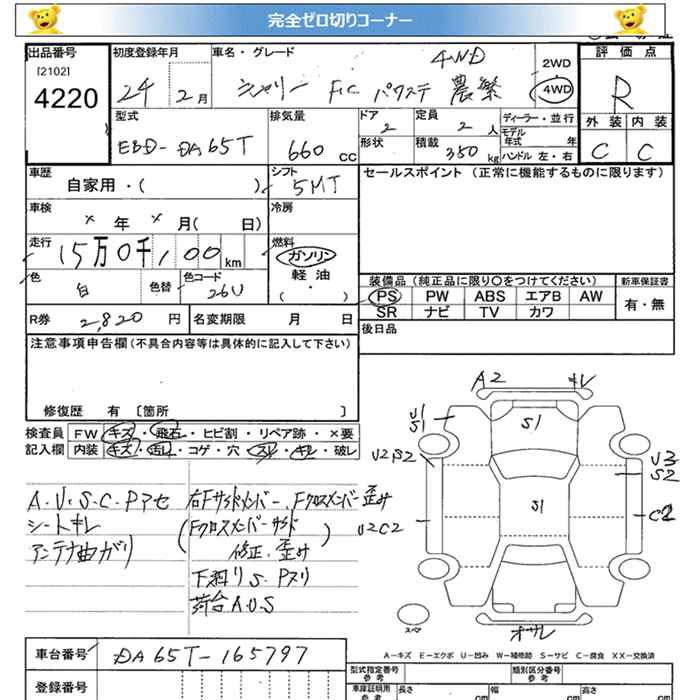 完全ゼロ切りコーナー
出品番号 初度登録年月 車名・グレード 4WD 2WD 評価点
[2102]
4220 24 2月 キャリー F.C パワステ 農繁 4WD R
型式 排気量 ドア 定員 ディーラー・並行 外装 内装
EBD-DA65T 660 CC 2 2人 モデル年式 年 C C
形状 積載 350kg ハンドル 左・右
車歴 シフト セールスポイント (正常に機能するものに限ります)
自家用・( ) 5MT
車検 冷房
× 年 × 月( 日)
走行 燃料
15万0千,100km ガソリン
軽油
( ・ )
色 色替 色コード 装備品 (純正品に限り○をつけてください) 新車保証書
白 26U PS PW ABS エアB AW 有・無
SR ナビ TV カワ
R券 2,820円 名変期限 月 日 後日品
注意事項申告欄 (不具合内容等は具体的に記入して下さい)
修復歴 有 [箇所 ]
検査員 FW キズ・飛石・ヒビ割・リペア跡・×要
記入欄 内装 キズ・汚レ・コゲ・穴・スレ・キレ・破レ
A2 キレ
U1
S1
S1
U2 S2
U3
S2
S1
U2C2 C2
スペア
オサレ
A.U.S.C.Pアセ 右Fサイドメンバー、Fクロスメンバー歪み
シートキレ (Fクロスメンバーサイド
アンテナ曲がり 修正、歪み)
下廻りS.Pヌリ
荷台A.U.S
A−キズ E−エクボ U−凹み W−補修跡 S−サビ C−腐食 XX−交換済
車台番号 DA65T-165797
登録番号 型式指定番号 参考 類別区分番号 参考
車庫証明用 参考 長さ cm 幅 cm 高さ cm